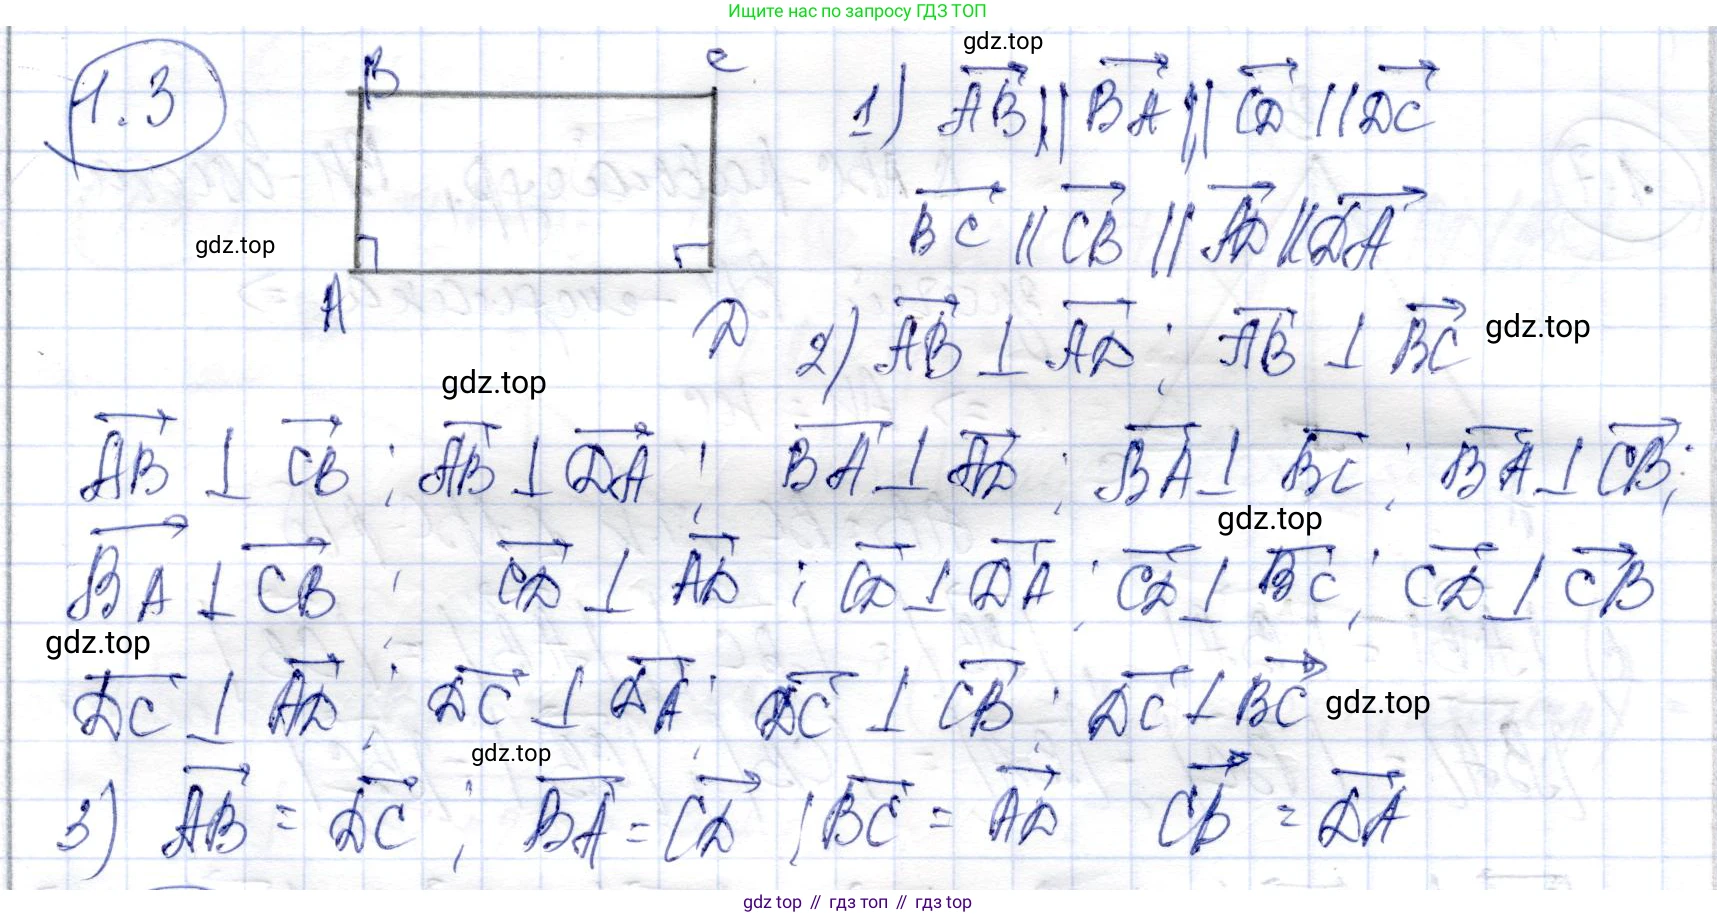 Ищите нас по запросу ГДЗ ТОП
1.3
B C
A D
gdz.top
gdz.top
1) AB || BA || CD || DC
BC || CB || AD || DA
2) AB ⊥ AD ; AB ⊥ BC gdz.top
gdz.top
AB ⊥ CB ; AB ⊥ DA ; BA ⊥ AD ; BA ⊥ BC ; BA ⊥ CB ;
gdz.top
BA ⊥ CB ; CD ⊥ AD ; CD ⊥ DA ; CD ⊥ BC ; CD ⊥ CB
gdz.top
DC ⊥ AD ; DC ⊥ DA ; DC ⊥ CB ; DC ⊥ BC gdz.top
gdz.top
3) AB = DC ; BA = CD ; BC = AD CB = DA
gdz top // гдз топ // гдз top